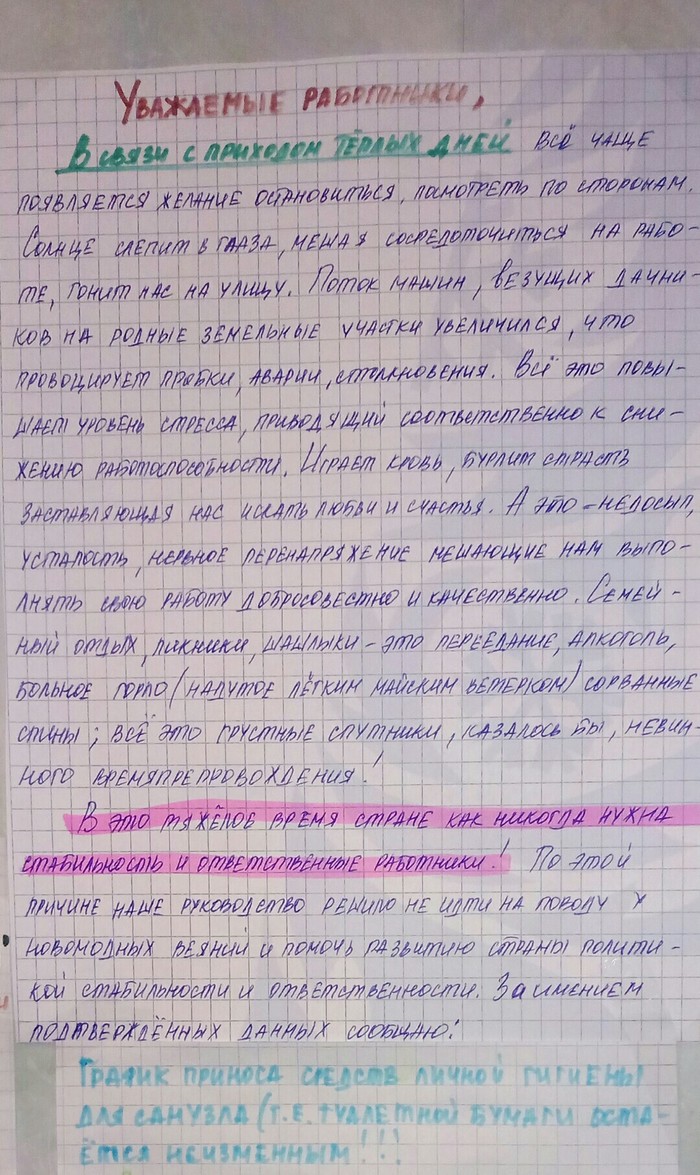 Уважаемые работники,
В связи с приходом тёплых дней всё чаще
появляется желание остановиться, посмотреть по сторонам.
Солнце слепит в глаза, мешая сосредоточиться на рабо-
те, гонит нас на улицу. Поток машин, везущих дачни-
ков на родные земельные участки увеличился, что
провоцирует пробки, аварии, столкновения. Всё это повы-
шает уровень стресса, приводящий соответственно к сни-
жению работоспособности. Играет кровь, бурлит страсть
заставляющая нас искать любви и счастья. А это - недосып,
усталость, нервное перенапряжение мешающие нам выпо-
лнять свою работу добросовестно и качественно. Семей-
ный отдых, пикники, шашлыки - это переедание, алкоголь,
больное горло (надутое лёгким майским ветерком) сорванные
спины; всё это грустные спутники, казалось бы, невин-
ного времяпрепровождения!
В это тяжёлое время стране как никогда нужна
стабильность и ответственные работники! По этой
причине наше руководство решило не идти на поводу у
новомодных веяний и помочь развитию страны полити-
кой стабильности и ответственности. За имением
подтверждённых данных сообщаю:
График приноса средств личной гигиены
для санузла (т.е. туалетной бумаги оста-
ётся неизменным!!!